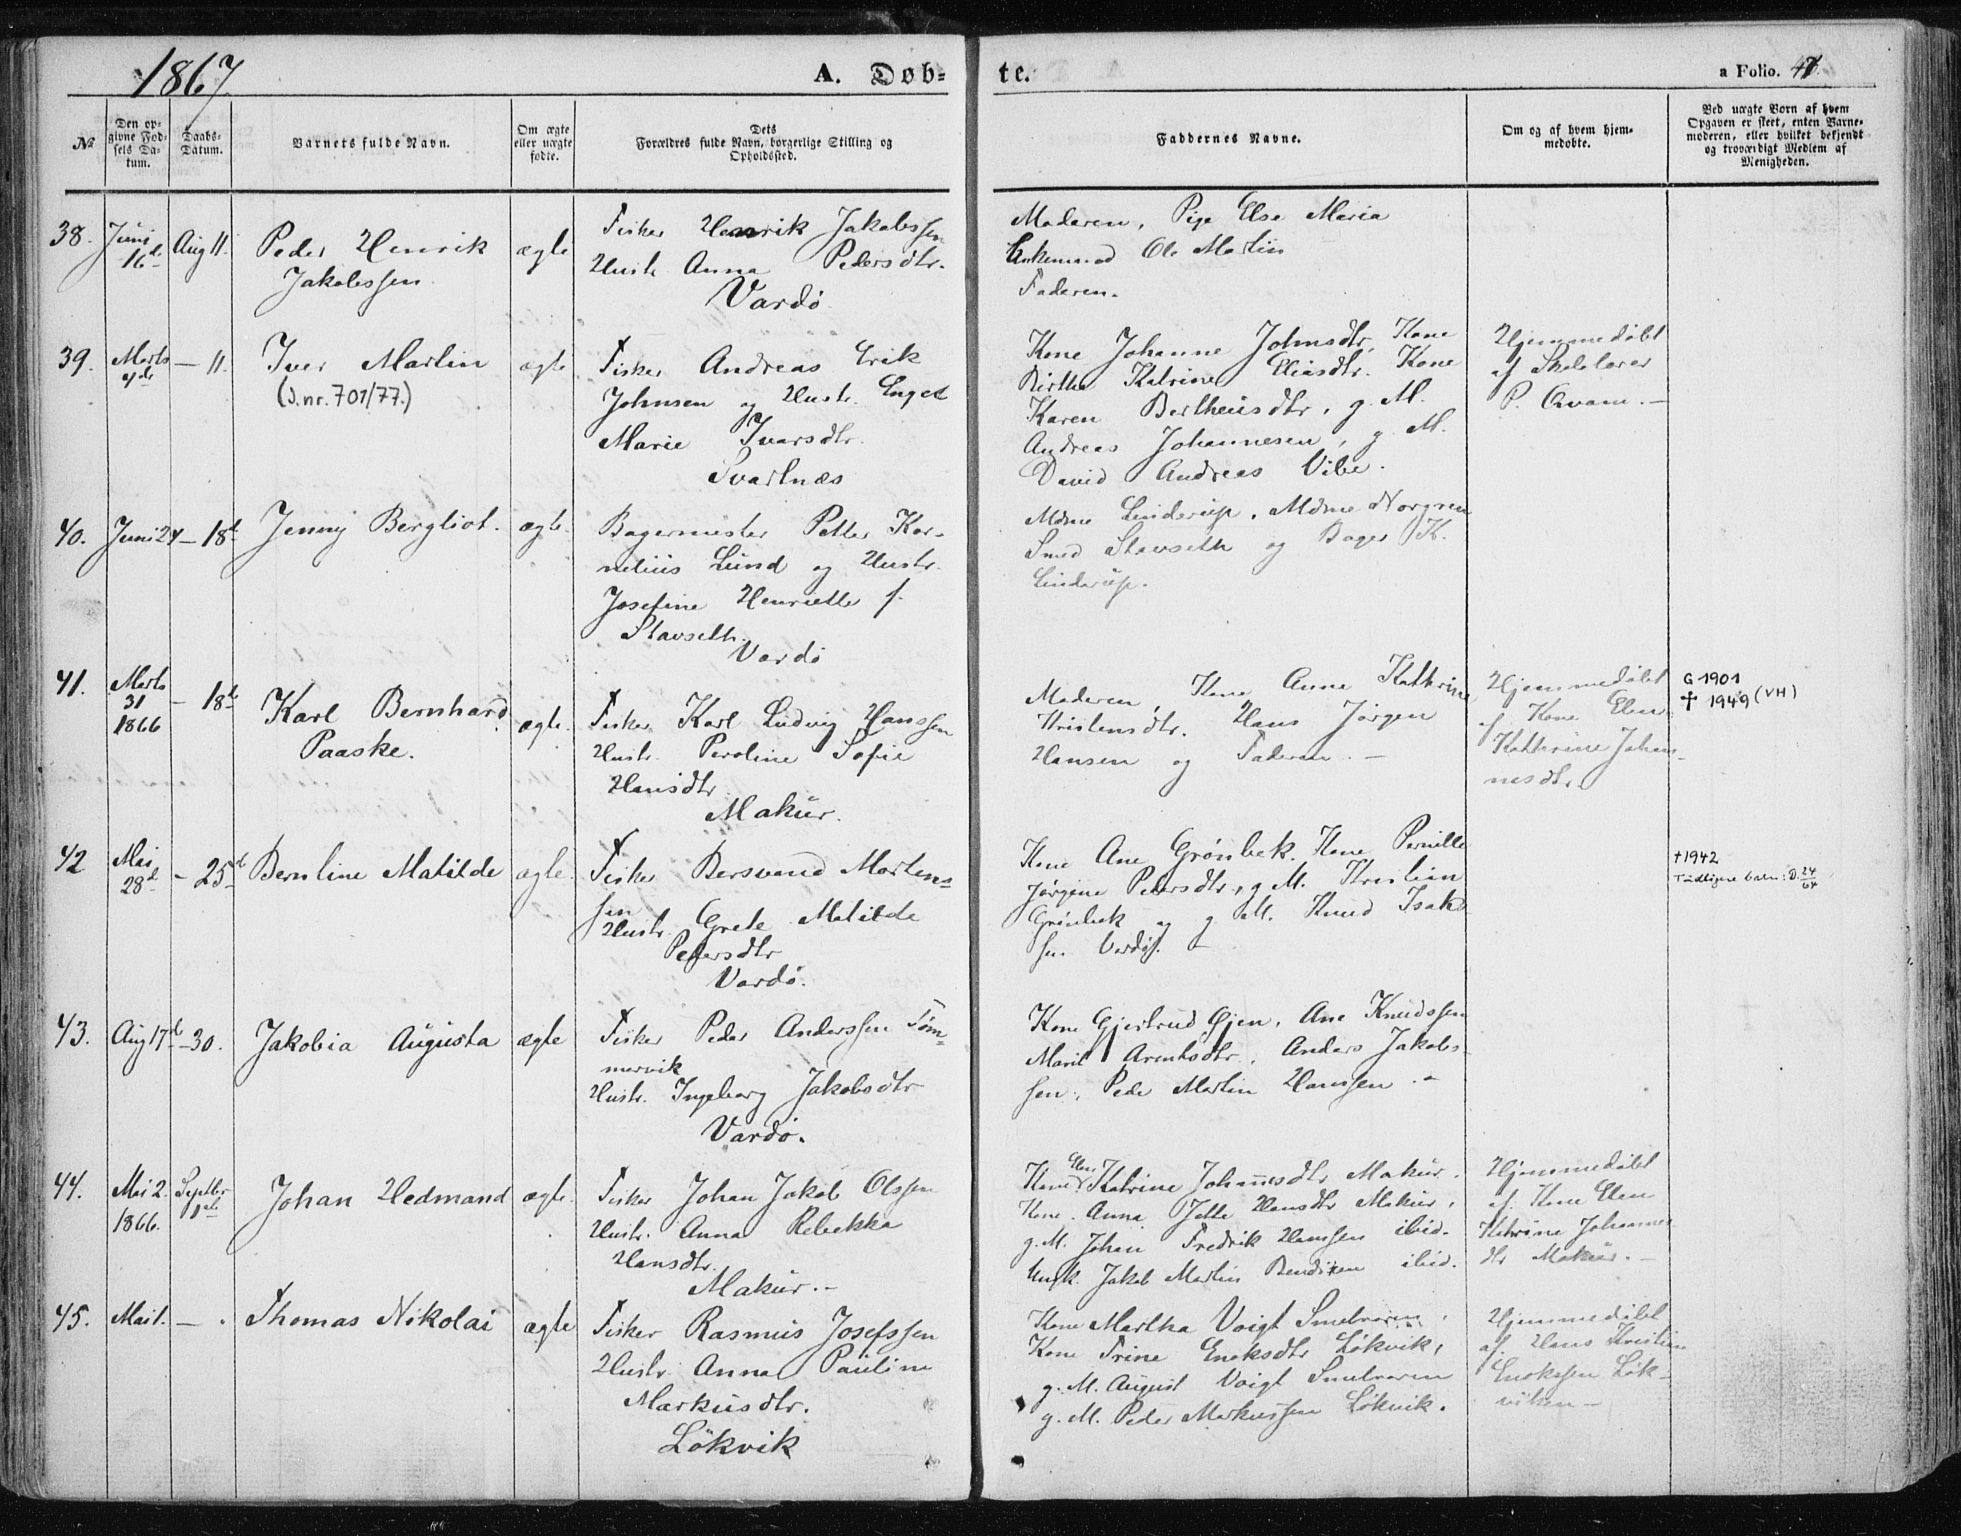 1867
A. Døb-
te.
a Folio. 47
№
Den op-
givne Fød-
sels Da-
tum.
Daabs-
Datum.
Barnets fulde Navn.
Om ægte
eller uægte
fødte.
Dets
Forældres fulde Navn, borgerlige Stilling og
Opholdssted.
Faddernes Navne.
Om og af hvem hjem-
medøbte.
Ved uægte Børn af hvem
Opgaven er skeet, enten Barne-
moderen, eller hvilket bekjendt
og troværdigt Medlem af
Menigheden.
38.
Juni
16de
Aug 11.
Peder Henrik
Jakobssen
ægte
Fisker Henrik Jakobssen
Hustr. Anna Pedersdtr.
Vardö
Moderen, Pige Else Maria
Enkemand Ole Martin
Faderen.
39.
Marts
— 11.
Iver Martin
(J.nr. 701/77.)
ægte
Fisker Andreas Erik
Johnsen og Hustr. Inger
Marie Ivarsdtr.
Svartnæs
Kone Johanne Johnsdtr, Kone
Birthe Katrine Eliasdtr. Kone
Karen Bertheusdtr, g. M.
Andreas Johannesen, g. M.
David Andreas Vibe.
Hjemmedöbt
af Skolelærer
P. Qvam. —
40.
Juni 24
— 18de
Jenny Bergliot.
ægte.
Bagermester Petter Kor-
nelius Lund og Hustr.
Josefine Henriette f.
Stavseth.
Vardö
Mdme Linderup, Mdme Norgren
Smed Stavseth og Bager K.
Linderup.
41.
Marts
31
1866
— 18de
Karl Bernhard
Paaske.
ægte.
Fisker Karl Ludvig Hanssen
Hustr. Peroline Sofie
Hansdtr
Makur.
Moderen, Kone Anne Kathrine
Kristensdtr. Hans Jørgen
Hansen og Faderen. —
Hjemmedöbt
af Kone Elen
Kathrine Johan-
nesdtr.
G 1901
† 1949 (VH)
42
Mai
28de
- 25de
Berntine Matilde
ægte.
Fisker Bersvend Morten-
sen
Hustr. Grete Matilde
Petersdtr
Vardö.
Kone Ane Grönbek. Kone Pernille
Jørgine Petersdtr, g. M. Kristian
Grönbek og g. M. Knud Isak-
sen Vardö. —
†1942
Tidligere barn: D. 24/64
43.
Aug 17de
— 30.
Jakobia Augusta
ægte
Fisker Peder Anderssen Töm-
mervik
Hustr. Ingeborg Jakobsdtr
Vardö.
Kone Gjertrud Gjen, Ane Knudssen
Marit Arentsdtr, Anders Jakobs-
sen, Peder Martin Hanssen. —
44.
Mai 2.
1866.
Septbr
1ste
Johan Hedmand
ægte.
Fisker Johan Jakob Olssen
Hustr. Anna Rebekka
Hansdtr.
Makur. —
Kone Elen Katrine Johannesdtr Makur.
Kone Anna Jette Hansdtr Makur,
g. M. Johan Fredrik Hanssen ibid.
Ungk. Jakob Martin Bendixen ibid.
Hjemmedöbt
af Kone Elen
Katrine Johannes
dtr Makur. —
45.
Mai 1.
— .
Thomas Nikolai
ægte
Fisker Rasmus Josefssen
Hustr. Anna Pauline
Markusdtr.
Lökvik
Kone Martha Voigt Smelroren,
Kone Trine Enoksdtr Lökvik,
g. M. August Voigt Smelroren
g. M. Peder Markussen Lökvik.
Hjemmedöbt
af Hans Kristian
Enokssen Lök-
viken —